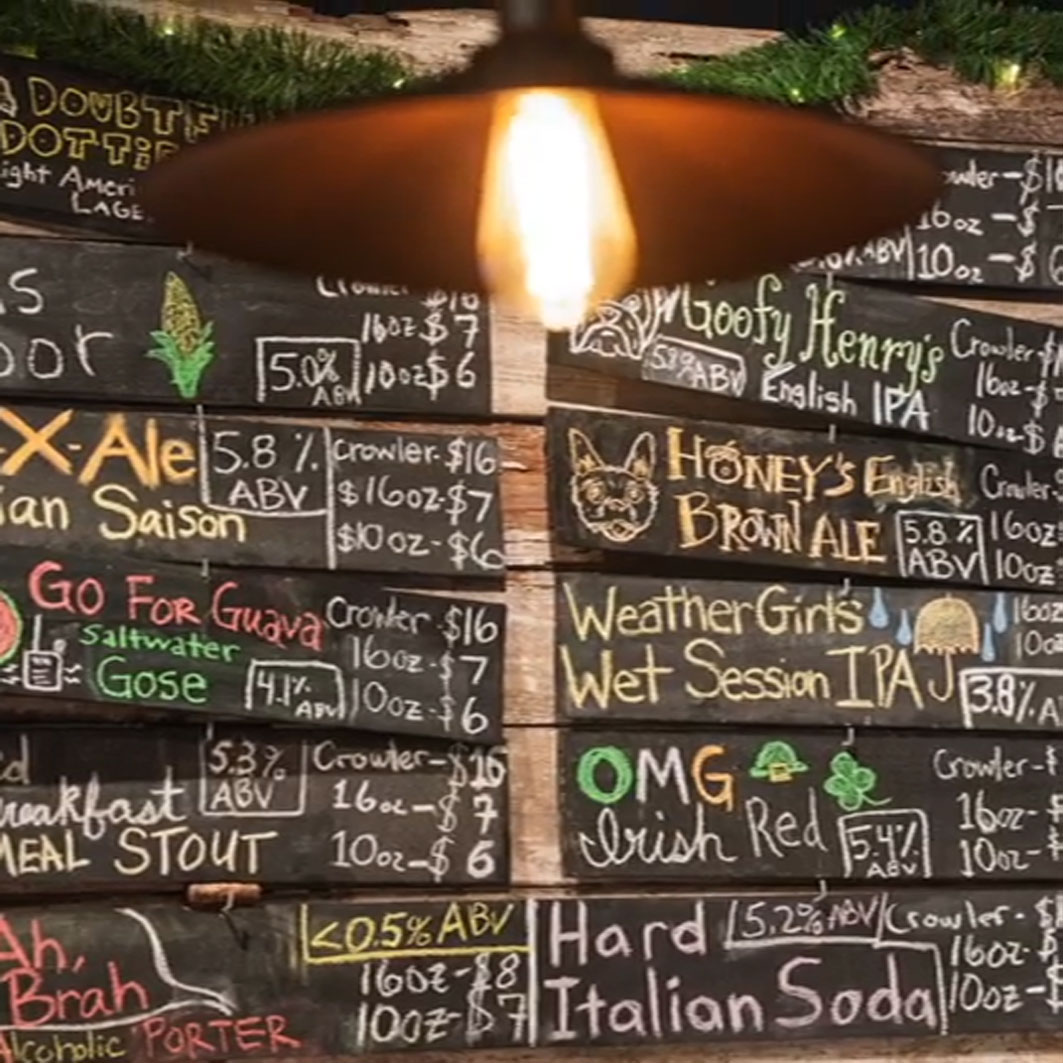 DOUBTF
DOTTiE
ight Ameri
LAGE
S
oor
Crowler $16
16oz $ 7
10oz $ 6
5.0%
ABV
X-Ale
ian Saison
5.8 %
ABV
Crowler- $16
$16oz-$7
$10 oz-$6
GO FOR Guava
Saltwater
Gose
4.1%
ABV
Crowler $16
16oz-$7
10oz-$6
ed
reakfast
MEAL STOUT
5.3%
ABV
Crowler-$16
16oz-$ 7
10oz-$ 6
Ah,
Brah
Alcoholic PORTER
<0.5% ABV
16oz-$8
10oz-$7
owler-$1
16oz-$
10oz-$ 6
ABV
Goofy Henry's
English IPA
ABV
Crowler-$1
16oz-$
10oz-$
HONEY'S English
BROWN ALE
5.8 %
ABV
Crowler-
16oz
10oz
Weather Girls
Wet Session IPA
3.8% A
16oz
10oz
OMG
Irish Red
5.4%
ABV
Crowler-$
16oz-
10oz-
Hard
Italian Soda
5.2% ABV
Crowler-$
16oz-$
10oz-$